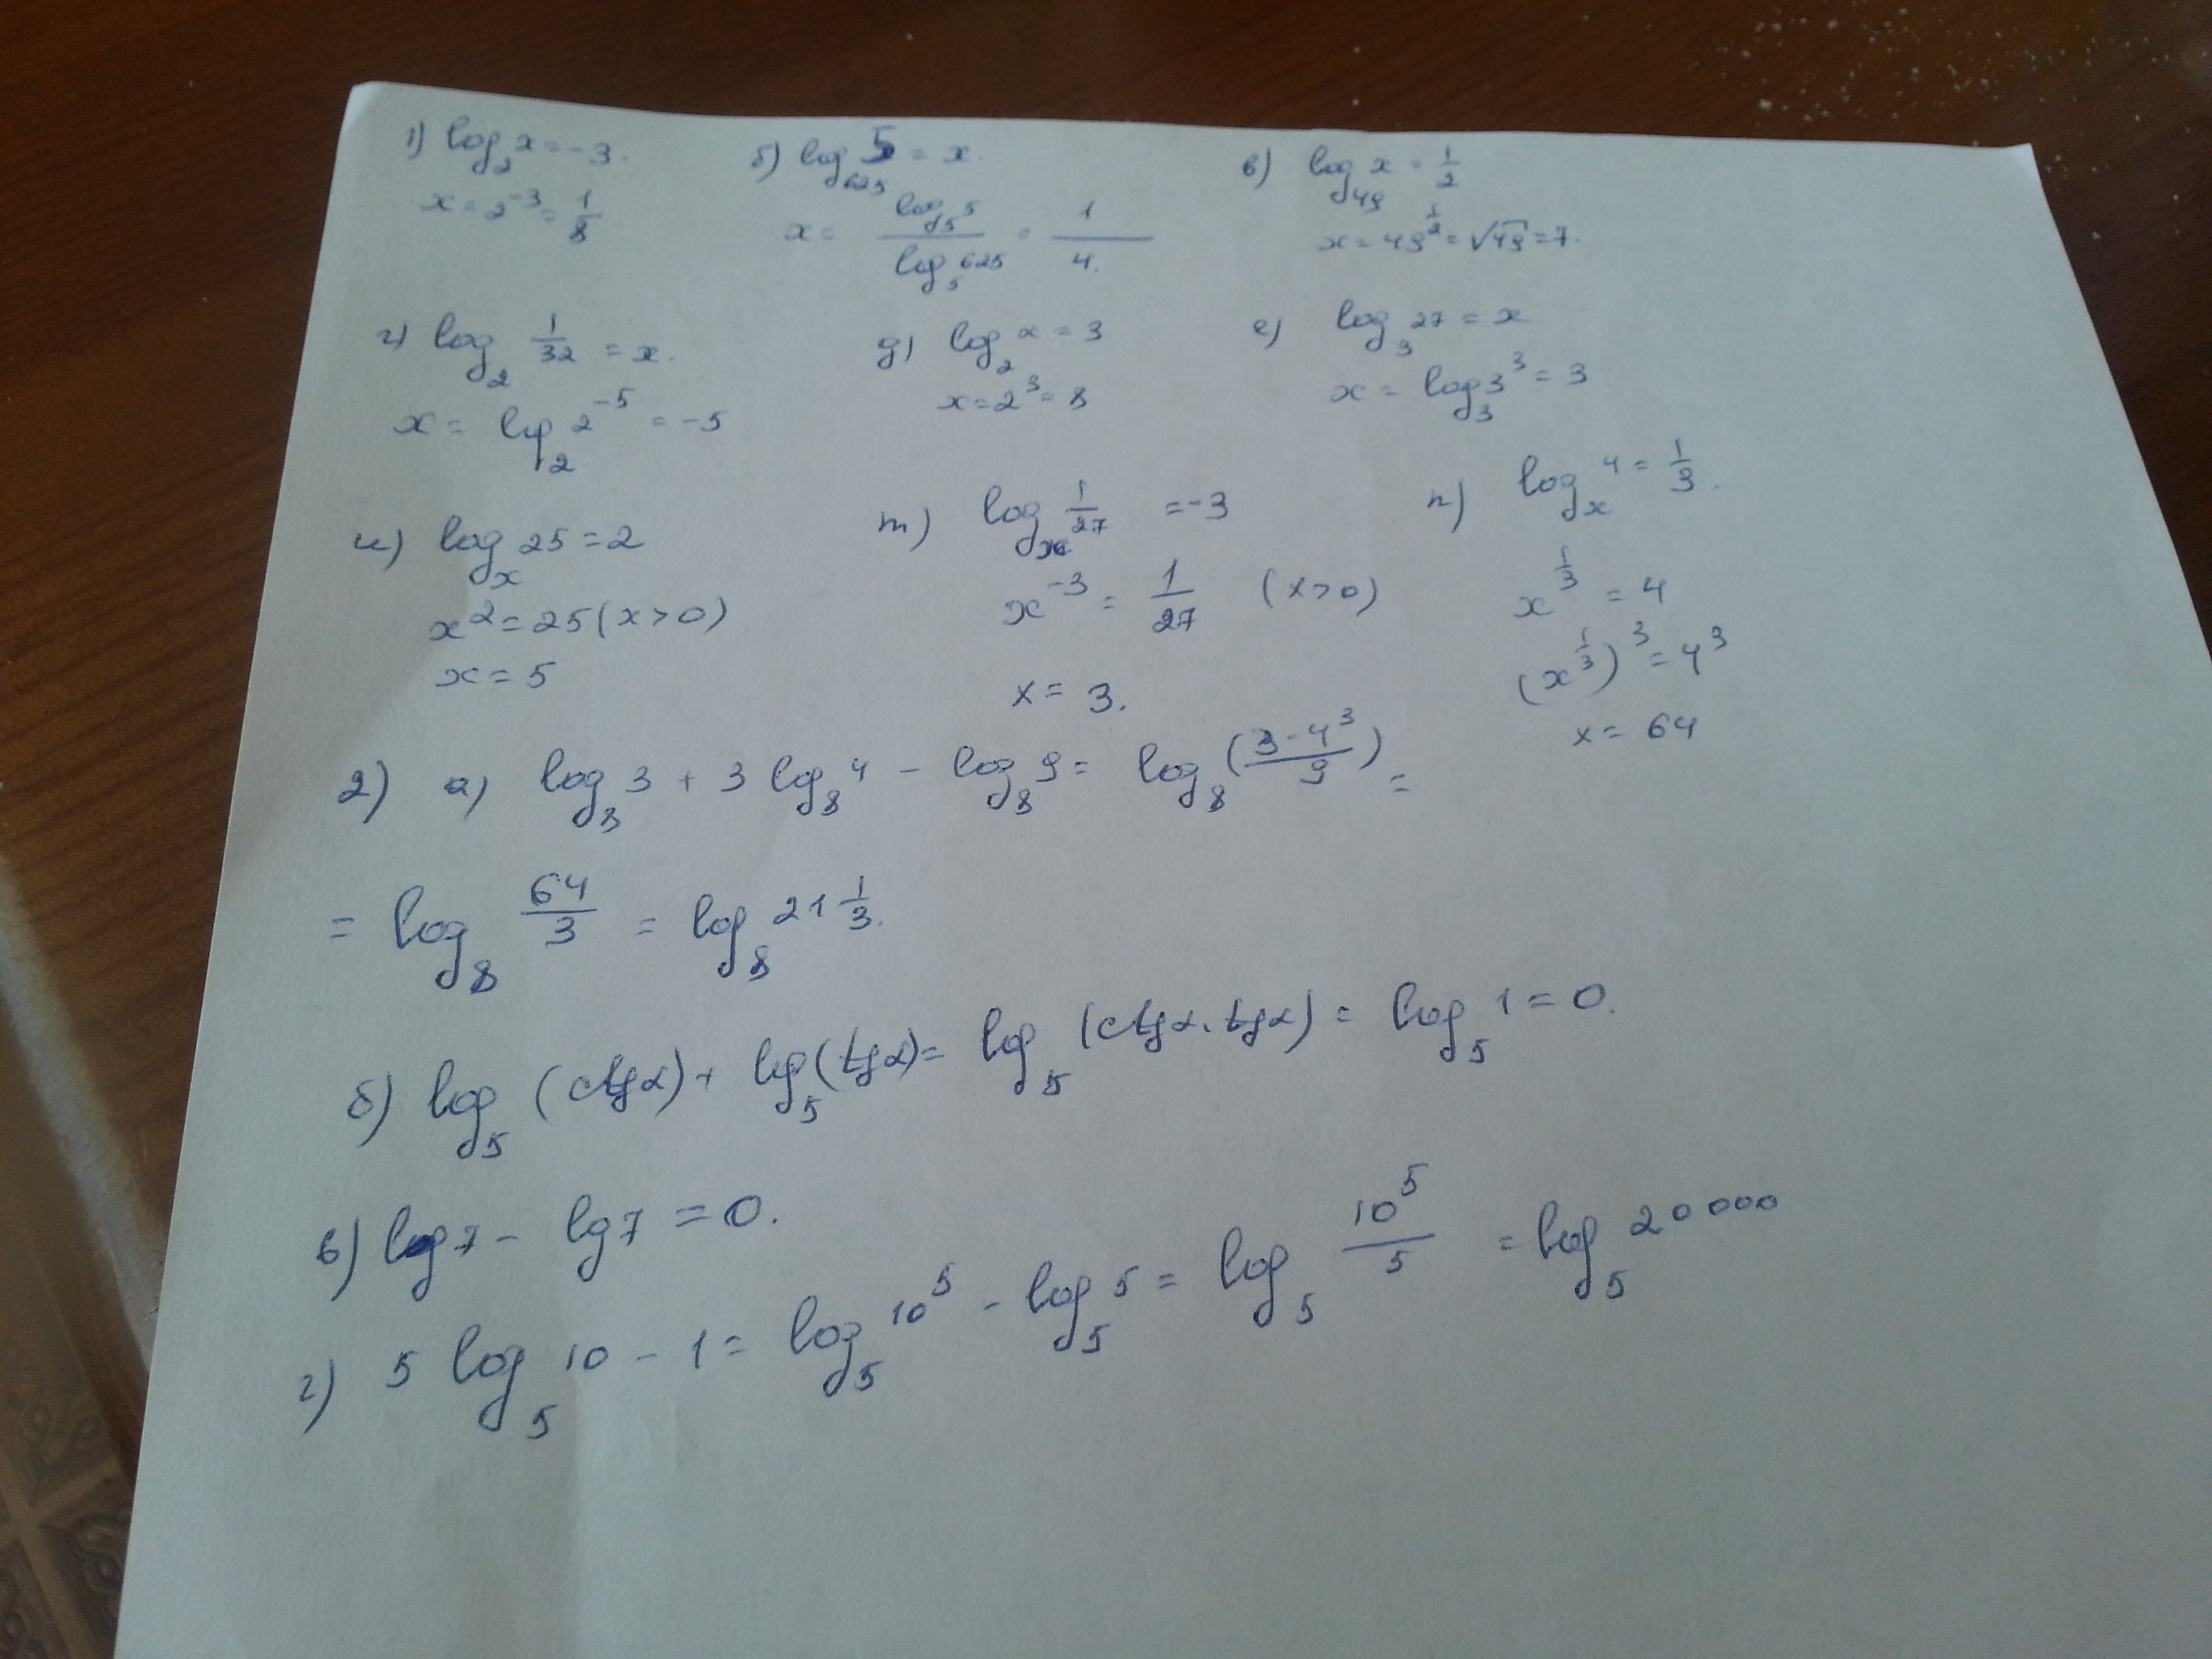 1) log₂ x = -3.
x = 2⁻³ = 1/8
б) log₆₂₅ 5 = x.
x = log₅ 5 / log₅ 625 = 1/4.
в) log₄₉ x = 1/2
x = 49^(1/2) = √49 = 7.
г) log₂ 1/32 = x.
x = log₂ 2⁻⁵ = -5
д) log₂ x = 3
x = 2³ = 8
е) log₃ 27 = x
x = log₃ 3³ = 3
и) logₓ 25 = 2
x² = 25 (x > 0)
x = 5
т) logₓ 1/27 = -3
x⁻³ = 1/27 (x > 0)
x = 3.
п) logₓ 4 = 1/3.
x^(1/3) = 4
(x^(1/3))³ = 4³
x = 64
2) а) log₈ 3 + 3 log₈ 4 - log₈ 9 = log₈ (3·4³/9) =
= log₈ 64/3 = log₈ 21 1/3.
б) log₅ (ctgα) + log₅ (tgα) = log₅ (ctgα·tgα) = log₅ 1 = 0.
в) lg 7 - lg 7 = 0.
г) 5 log₅ 10 - 1 = log₅ 10⁵ - log₅ 5 = log₅ 10⁵/5 = log₅ 20000